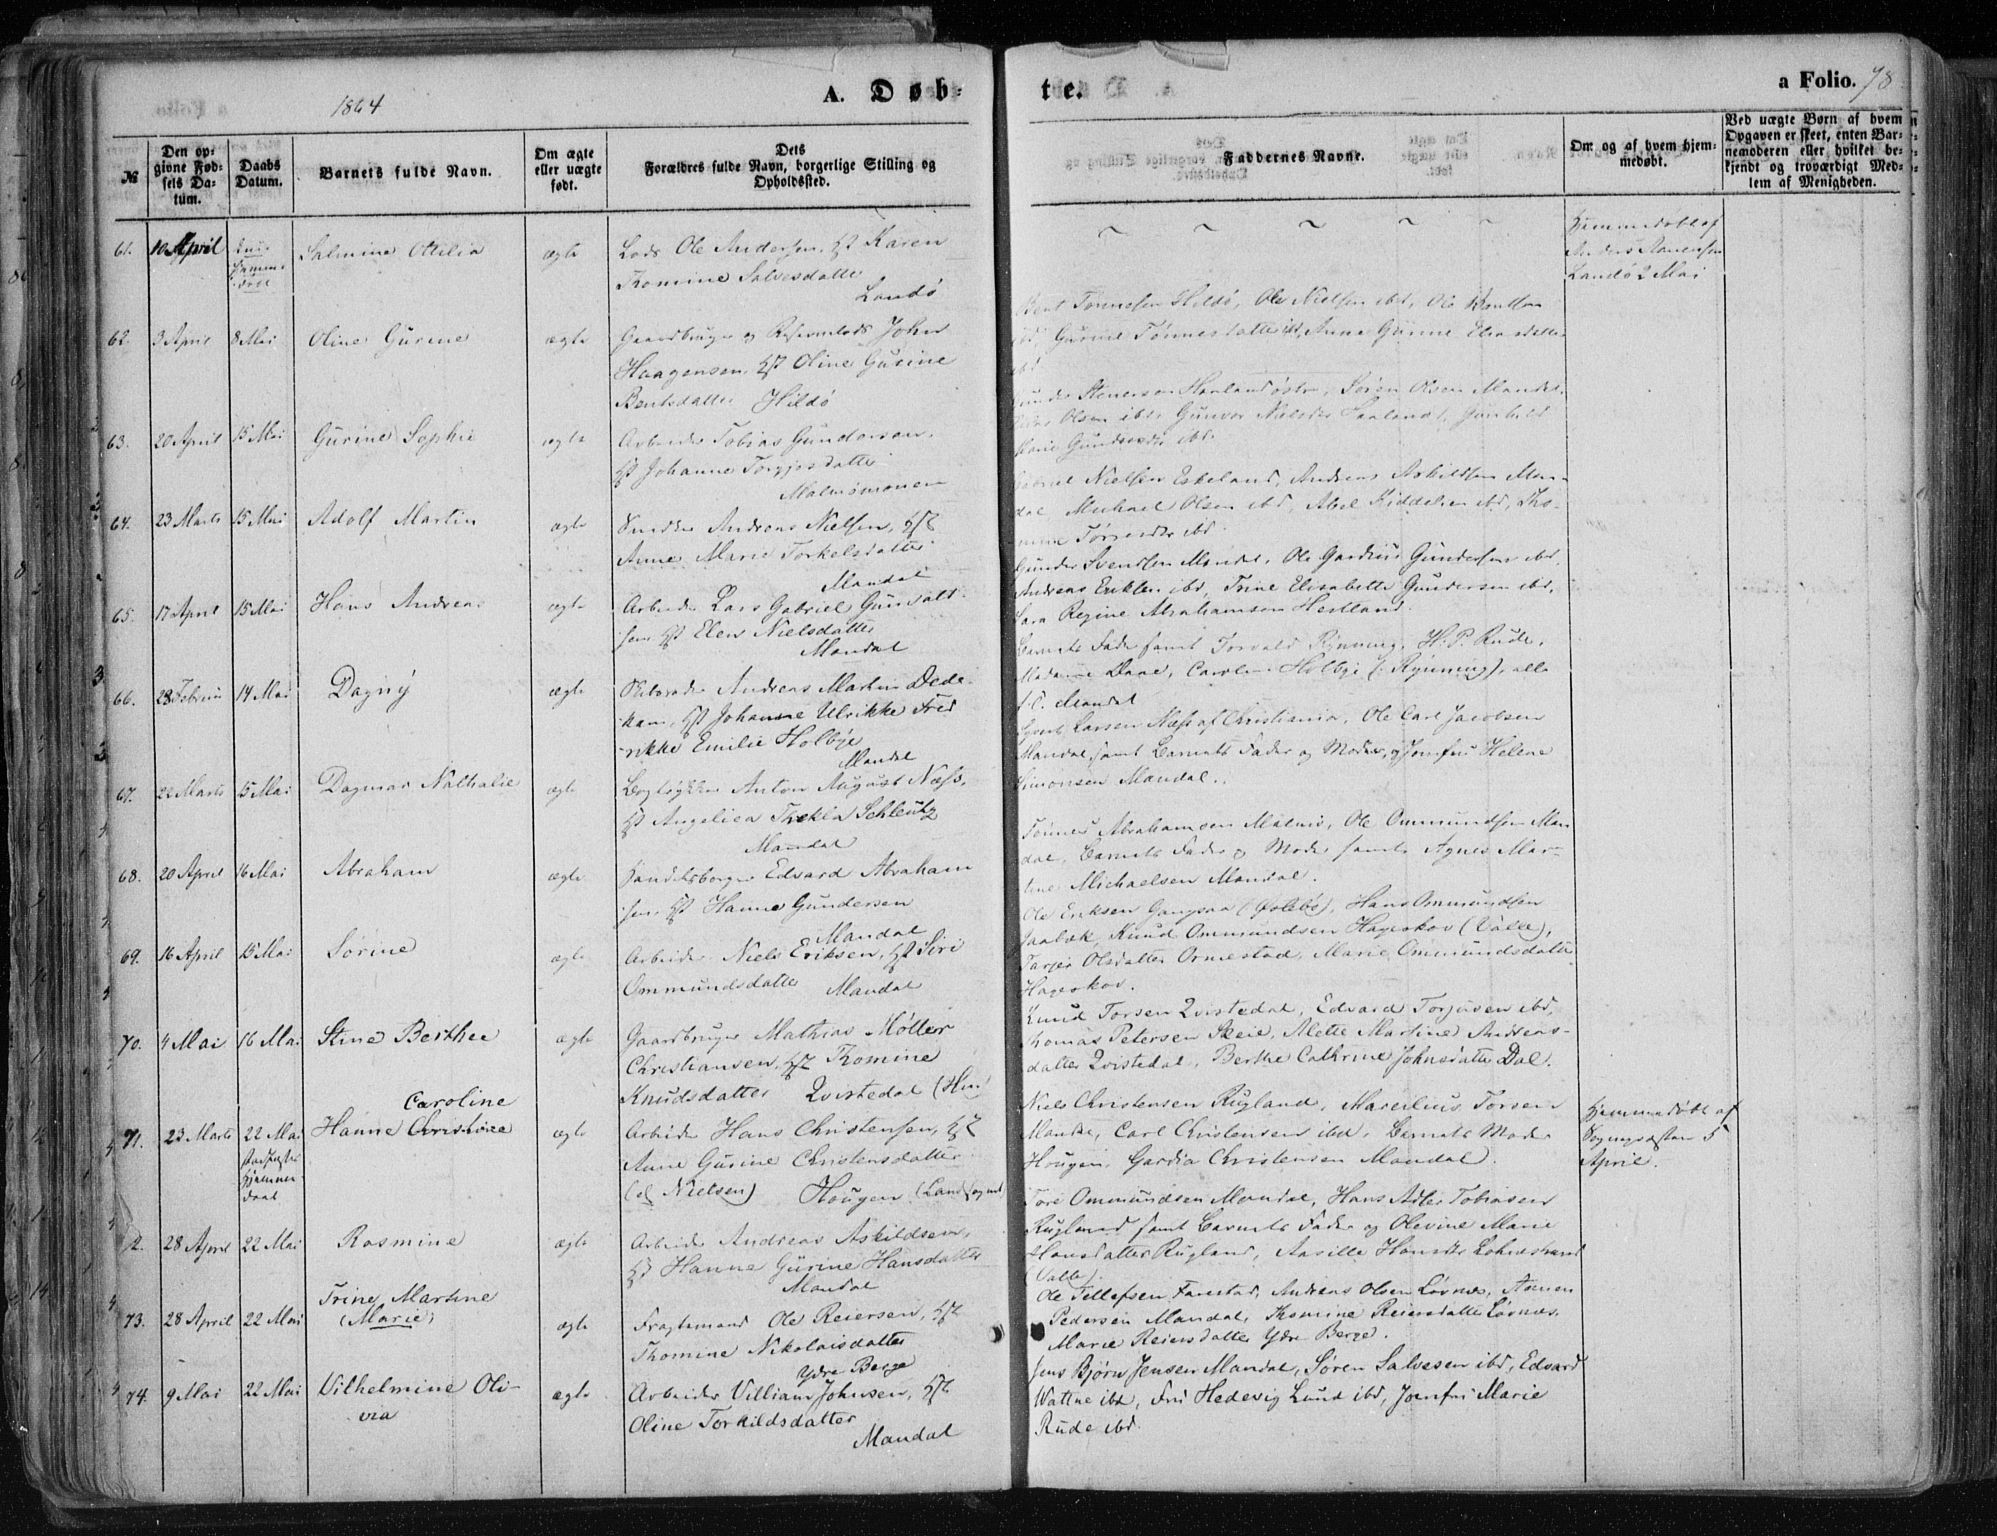 1864
A. Døb-
te.
a Folio. 78
№
Den op-
givne Fød-
sels Da-
tum.
Daabs
Datum.
Barnets fulde Navn.
Om ægte
eller uægte
født.
Dets
Forældres fulde Navn, borgerlige Stilling og
Opholdssted.
Faddernes Navne.
Om og af hvem hjem-
medøbt.
Ved uægte Børn af hvem
Opgaven er skeet, enten Bar-
nemoderen eller hvilket be-
kjendt og troværdigt Med-
lem af Menigheden.
61. 10 April
Salmine Otilia
ægte
Lods Ole Andersen, Hst Karen
Thomine Salvesdatter
Landø
Hjemmedøbt af
Anders Aanensen
Landø 2 Mai
62. 3 April 8 Mai Oline Gurine ægte
Gaardbruger og Reservelods John
Haagensen, Hst Oline Gurine
Bentsdatter Hildø
Bent Tønnesen Hildø, Ole Nielsen ibd, Ole Bentsen
ibd, Gurine Tønnesdatter ibd, Anne Gurine Eliasdatter
ibd
63. 20 April 15 Mai Gurine Sophie ægte
Arbeider Tobias Gundersen,
Hst Johanne Torgjersdatter
Malmømonen
Gunder Stenersen Haaland østre, Søren Olsen Mandal,
Peder Olsen ibd, Gunvor Nielsdtr Haaland, Gunhild
Marie Gundersdtr ibd.
64. 23 Marts 15 Mai Adolf Martin ægte
Snedker Andreas Nielsen, Hst
Anne Marie Torkelsdatter
Mandal
Gabriel Nielsen Eskeland, Andreas Askildsen Man-
dal, Michael Olsen ibd, Abel Kiddelsen ibd, Tho-
mine Tørresdtr ibd
65. 17 April 15 Mai Hans Andreas ægte
Arbeider Lars Gabriel Gunvald-
sen, Hst Elen Nielsdatter
Mandal
Gunder Svendsen Mandal, Ole Gardius Gundersen ibd,
Andreas Eriksen ibd, Trine Elisabeth Gundersen ibd,
Sara Regine Abrahamsen Hestland.
66. 28 Februar 14 Mai Dagny ægte
Skibsreder Andreas Martin Dede-
kam, Hst Johanne Ulrikke Fred-
rikke Emilie Holbye
Mandal
Barnets Fader samt Torvald Rynning, H. P. Rude,
Madame Daae, Caroline Holbye (f. Rynning), alle
f. T. Mandal
67. 22 Marts 15 Mai Dagmar Nathalie ægte
Bogtrykker Anton August Næss,
Hst Angelica Thekla Schleutz
Mandal
Sivert Larsen Næss af Christiania, Ole Carl Jacobsen
Mandal, samt Barnets Fader og Moder, og Jomfru Helene
Simonsen Mandal.
68. 20 April 16 Mai Abraham ægte
Handelsborger Edvard Abraham-
sen, Hst Hanne Gundersen
Mandal
Tønnes Abrahamsen Malmø, Ole Ommundsen Man-
dal, Barnets Fader og Moder samt Agnes Mar-
tine Michaelsen Mandal.
69. 16 April 15 Mai Sørine ægte
Arbeider Niels Eriksen, Hst Siri
Ommundsdatter Mandal
Ole Eriksen Gangsaa (Øslebø), Hans Ommundsen
Jaabæk, Knud Ommundsen Hageskov (Valle),
Tarjer Olsdatter Ormestad, Marie Ommundsdatter
Hageskov.
70. 4 Mai 16 Mai Stine Berthee ægte
Gaardbruger Mathias Møller
Christiansen, Hst Thomine
Knudsdatter Qvistedal (Hm)
Knud Torsen Qvistedal, Edvard Torjusen ibd,
Thomas Petersen Skeie, Mette Martine Andreas-
datter Qvistedal, Berthe Cathrine Johnsdatter Dal.
Caroline
71. 23 Marts 22 Mai Hanne Christine ægte
Stadfæstet
Hjemme-
daab
Arbeider Hans Christensen, Hst
Anne Gurine Christensdatter
(el Nielsen) Hougen (Landsognet)
Niels Christensen Rugland, Marcelius Torsen
Mandal, Carl Christensen ibd, Barnets Moder
Hougen, Gardia Christensen Mandal.
Hjemmedøbt af
Sognepræsten 5
April.
72. 28 April 22 Mai Rosmine ægte
Arbeider Andreas Askildsen,
Hst Hanne Gurine Hansdatter
Mandal
Tore Ommundsen Mandal, Hans Adler Tobiasen
Rugland samt Barnets Fader og Olevine Marie
Hansdatter Rugland, Aasille Hansdtr Lohnestrand
(Valle).
Trine Martine
73. 28 April 22 Mai (Marie) ægte
Fragtemand Ole Reiersen, Hst
Thomine Nikolaisdatter
Ydre Berge
Ole Tellefsen Farestad, Andreas Olsen Løvnes, Aanen
Pedersen Mandal, Thomine Reiersdatter Løvnæs,
Marie Reiersdatter Ydre Berge.
74. 9 Mai 22 Mai Vilhelmine Oli-
via
ægte
Arbeider Villiam Johnsen, Hst
Oline Torkildsdatter
Mandal
Jens Bjørn Jensen Mandal, Søren Salvesen ibd, Edvard
Wattne ibd, Fru Hedevig Lund ibd, Jomfru Marie
Rude ibd.